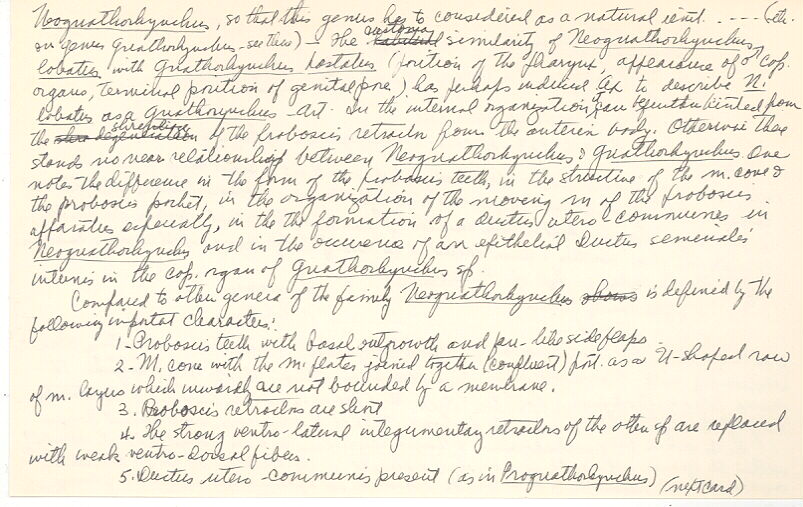 Neognathorhynchus, so that this genus has to considered as a natural unit. ---- (etc.
on genus Gnathorhynchus - see this) - The customary similarity of Neognathorhynchus
lobatus with Gnathorhynchus hastatus (position of the pharynx, appearance of ♂ cop.
organs, terminal position of genital pore) has perhaps induced Ax to describe N.
lobatus as a Gnathorynchus - Art. In the internal organization, can be mentioned from
the of the proboscis retractor from the anterior body. Otherwise there
stands no near relationship between Neognathorhynchus & Gnathorhynchus. One
notes the difference in the form of the proboscis teeth, in the structure of the m. cone &
the proboscis pocket, in the organization of the moving m of the proboscis
apparatus especially, in the the formation of a ductus utero-communis in
Neognathorhynchus and in the occurence of an epithelial Ductus seminalis
internis in the cop. organ of Gnathorhynchus sp.
Compared to other genera of the family Neognathorhynchus shows is defined by the
following important characters:
1- Proboscis teeth with basal outgrowth and fan-like side flaps.
2- M. cone with the m. plates joined together (confluent) post. as a U-shaped row
of m. which inwardly are not bounded by a membrane.
3. Proboscis retractors are short
4. The strong ventro-lateral integumentary retractors of the other sp are replaced
with weak ventro-dorsal fibers.
5. Ductus utero-communis present (as in Prognathorhynchus) (next card)